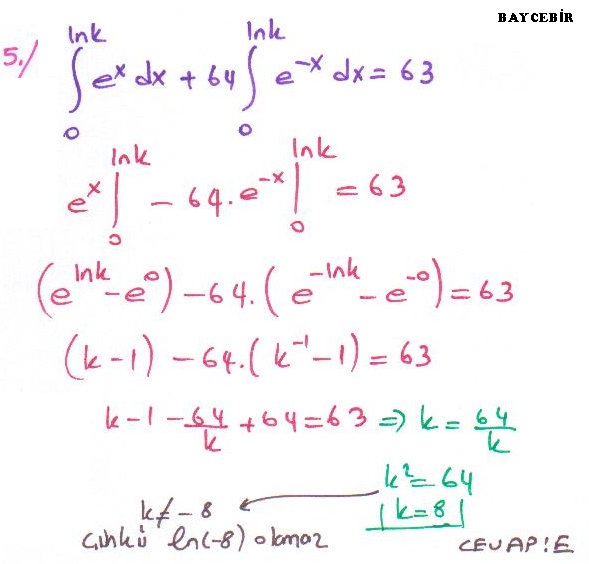 BAYCEBİR
5./ ∫₀^{lnk} eˣ dx + 64 ∫₀^{lnk} e⁻ˣ dx = 63
eˣ |₀^{lnk} − 64. e⁻ˣ |₀^{lnk} = 63
(e^{lnk} − e⁰) − 64. (e^{−lnk} − e^{−0}) = 63
(k − 1) − 64. (k⁻¹ − 1) = 63
k − 1 − 64/k + 64 = 63 ⇒ k = 64/k
k² = 64
k ≠ − 8 ← k = 8
Çünkü ln(−8) olamaz
CEVAP: E